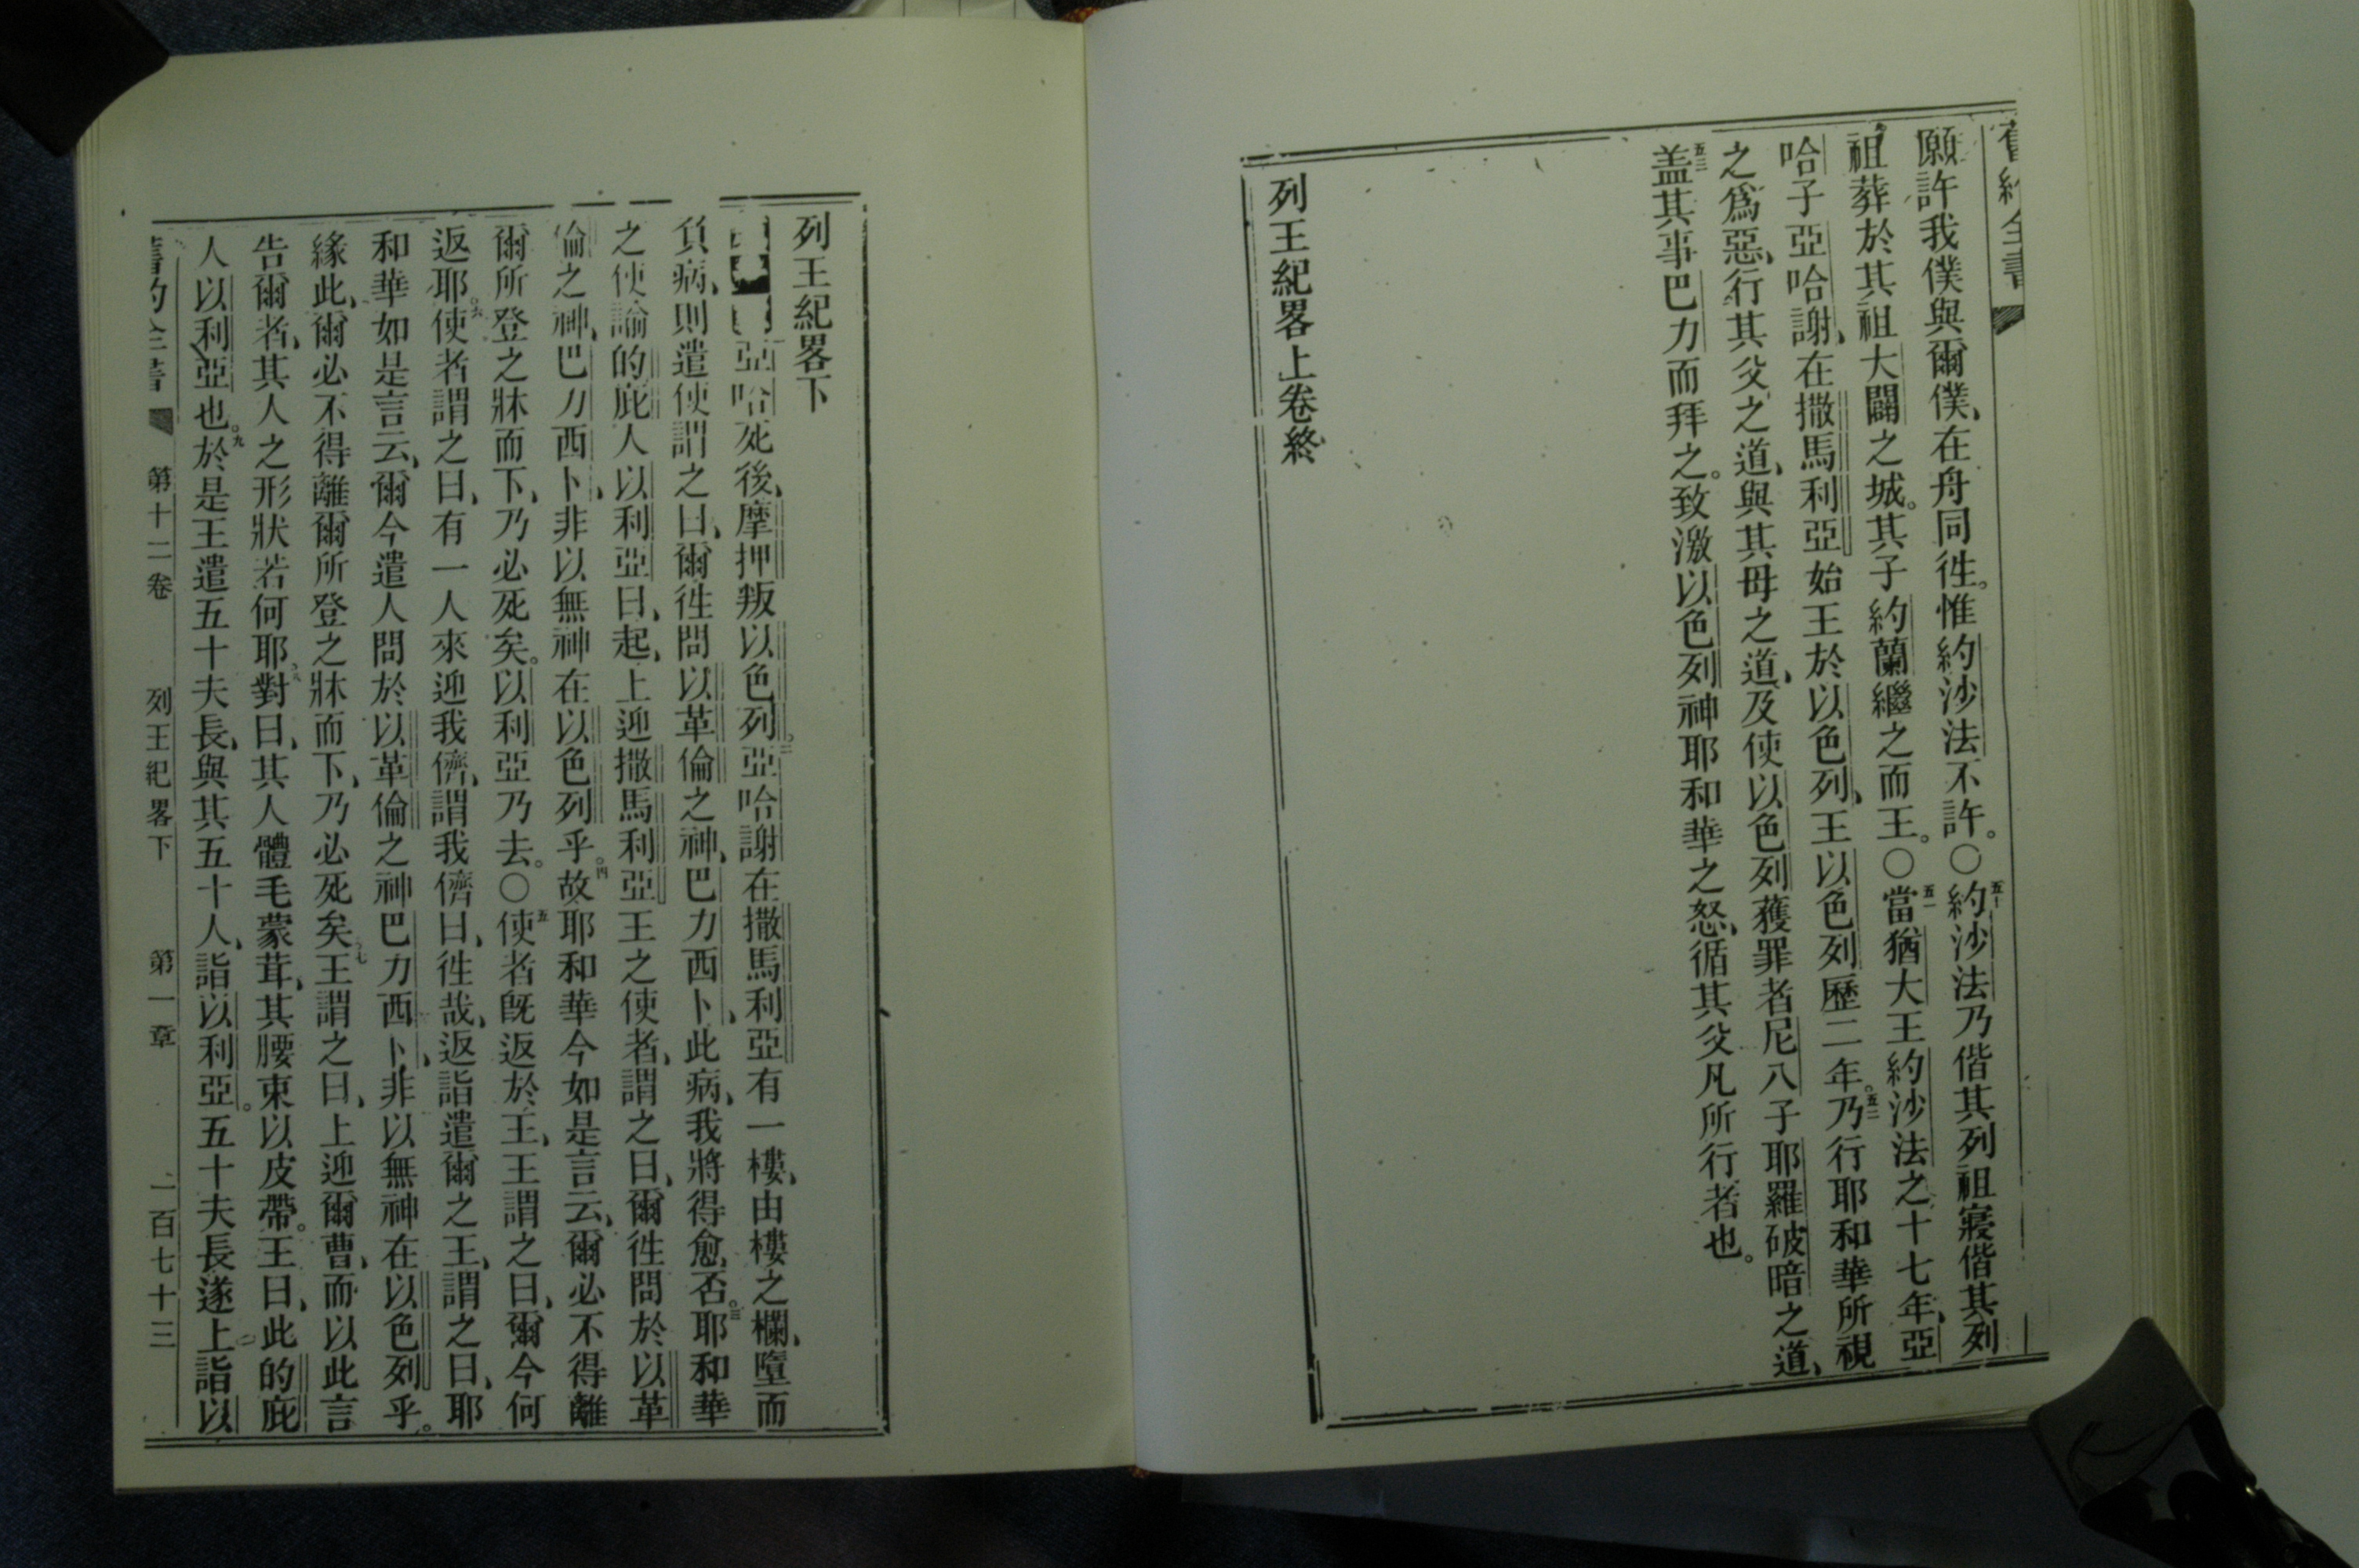 舊約全書
願許我僕與爾僕、在舟同徃。惟約沙法不許。〇五十約沙法乃偕其列祖寢偕其列
祖葬於其祖大闢之城。其子約蘭繼之而王。〇五一當猶大王約沙法之十七年、亞
哈子亞哈謝、在撒馬利亞始王於以色列、王以色列歷二年。五二乃行耶和華所視
之爲惡、行其父之道、與其母之道、及使以色列獲罪者尼八子耶羅破暗之道、
五三盖其事巴力而拜之。致激以色列神耶和華之怒、循其父凡所行者也。
列王紀畧上卷終
列王紀畧下
亞哈死後、摩押叛以色列。二亞哈謝在撒馬利亞有一樓、由樓之欄、墮而
負病、則遣使謂之曰、爾徃問以革倫之神、巴力西卜、此病、我將得愈否。三耶和華
之使諭的庇人以利亞曰、起、上迎撒馬利亞王之使者、謂之曰、爾徃問於以革
倫之神、巴力西卜、非以無神在以色列乎。四故耶和華今如是言云、爾必不得離
爾所登之牀而下、乃必死矣。以利亞乃去。〇五使者旣返於王、王謂之曰、爾今何
返耶。六使者謂之曰、有一人來迎我儕、謂我儕曰、徃哉、返詣遣爾之王、謂之曰、耶
和華如是言云、爾今遣人問於以革倫之神巴力西卜、非以無神在以色列乎。
緣此、爾必不得離爾所登之牀而下、乃必死矣。七王謂之曰、上迎爾曹、而以此言
告爾者、其人之形狀若何耶、八對曰、其人體毛蒙茸、其腰束以皮帶。王曰、此的庇
人以利亞也。九於是王遣五十夫長、與其五十人、詣以利亞。五十夫長遂上詣以
舊約全書 第十二卷 列王紀畧下 第一章 一百七十三